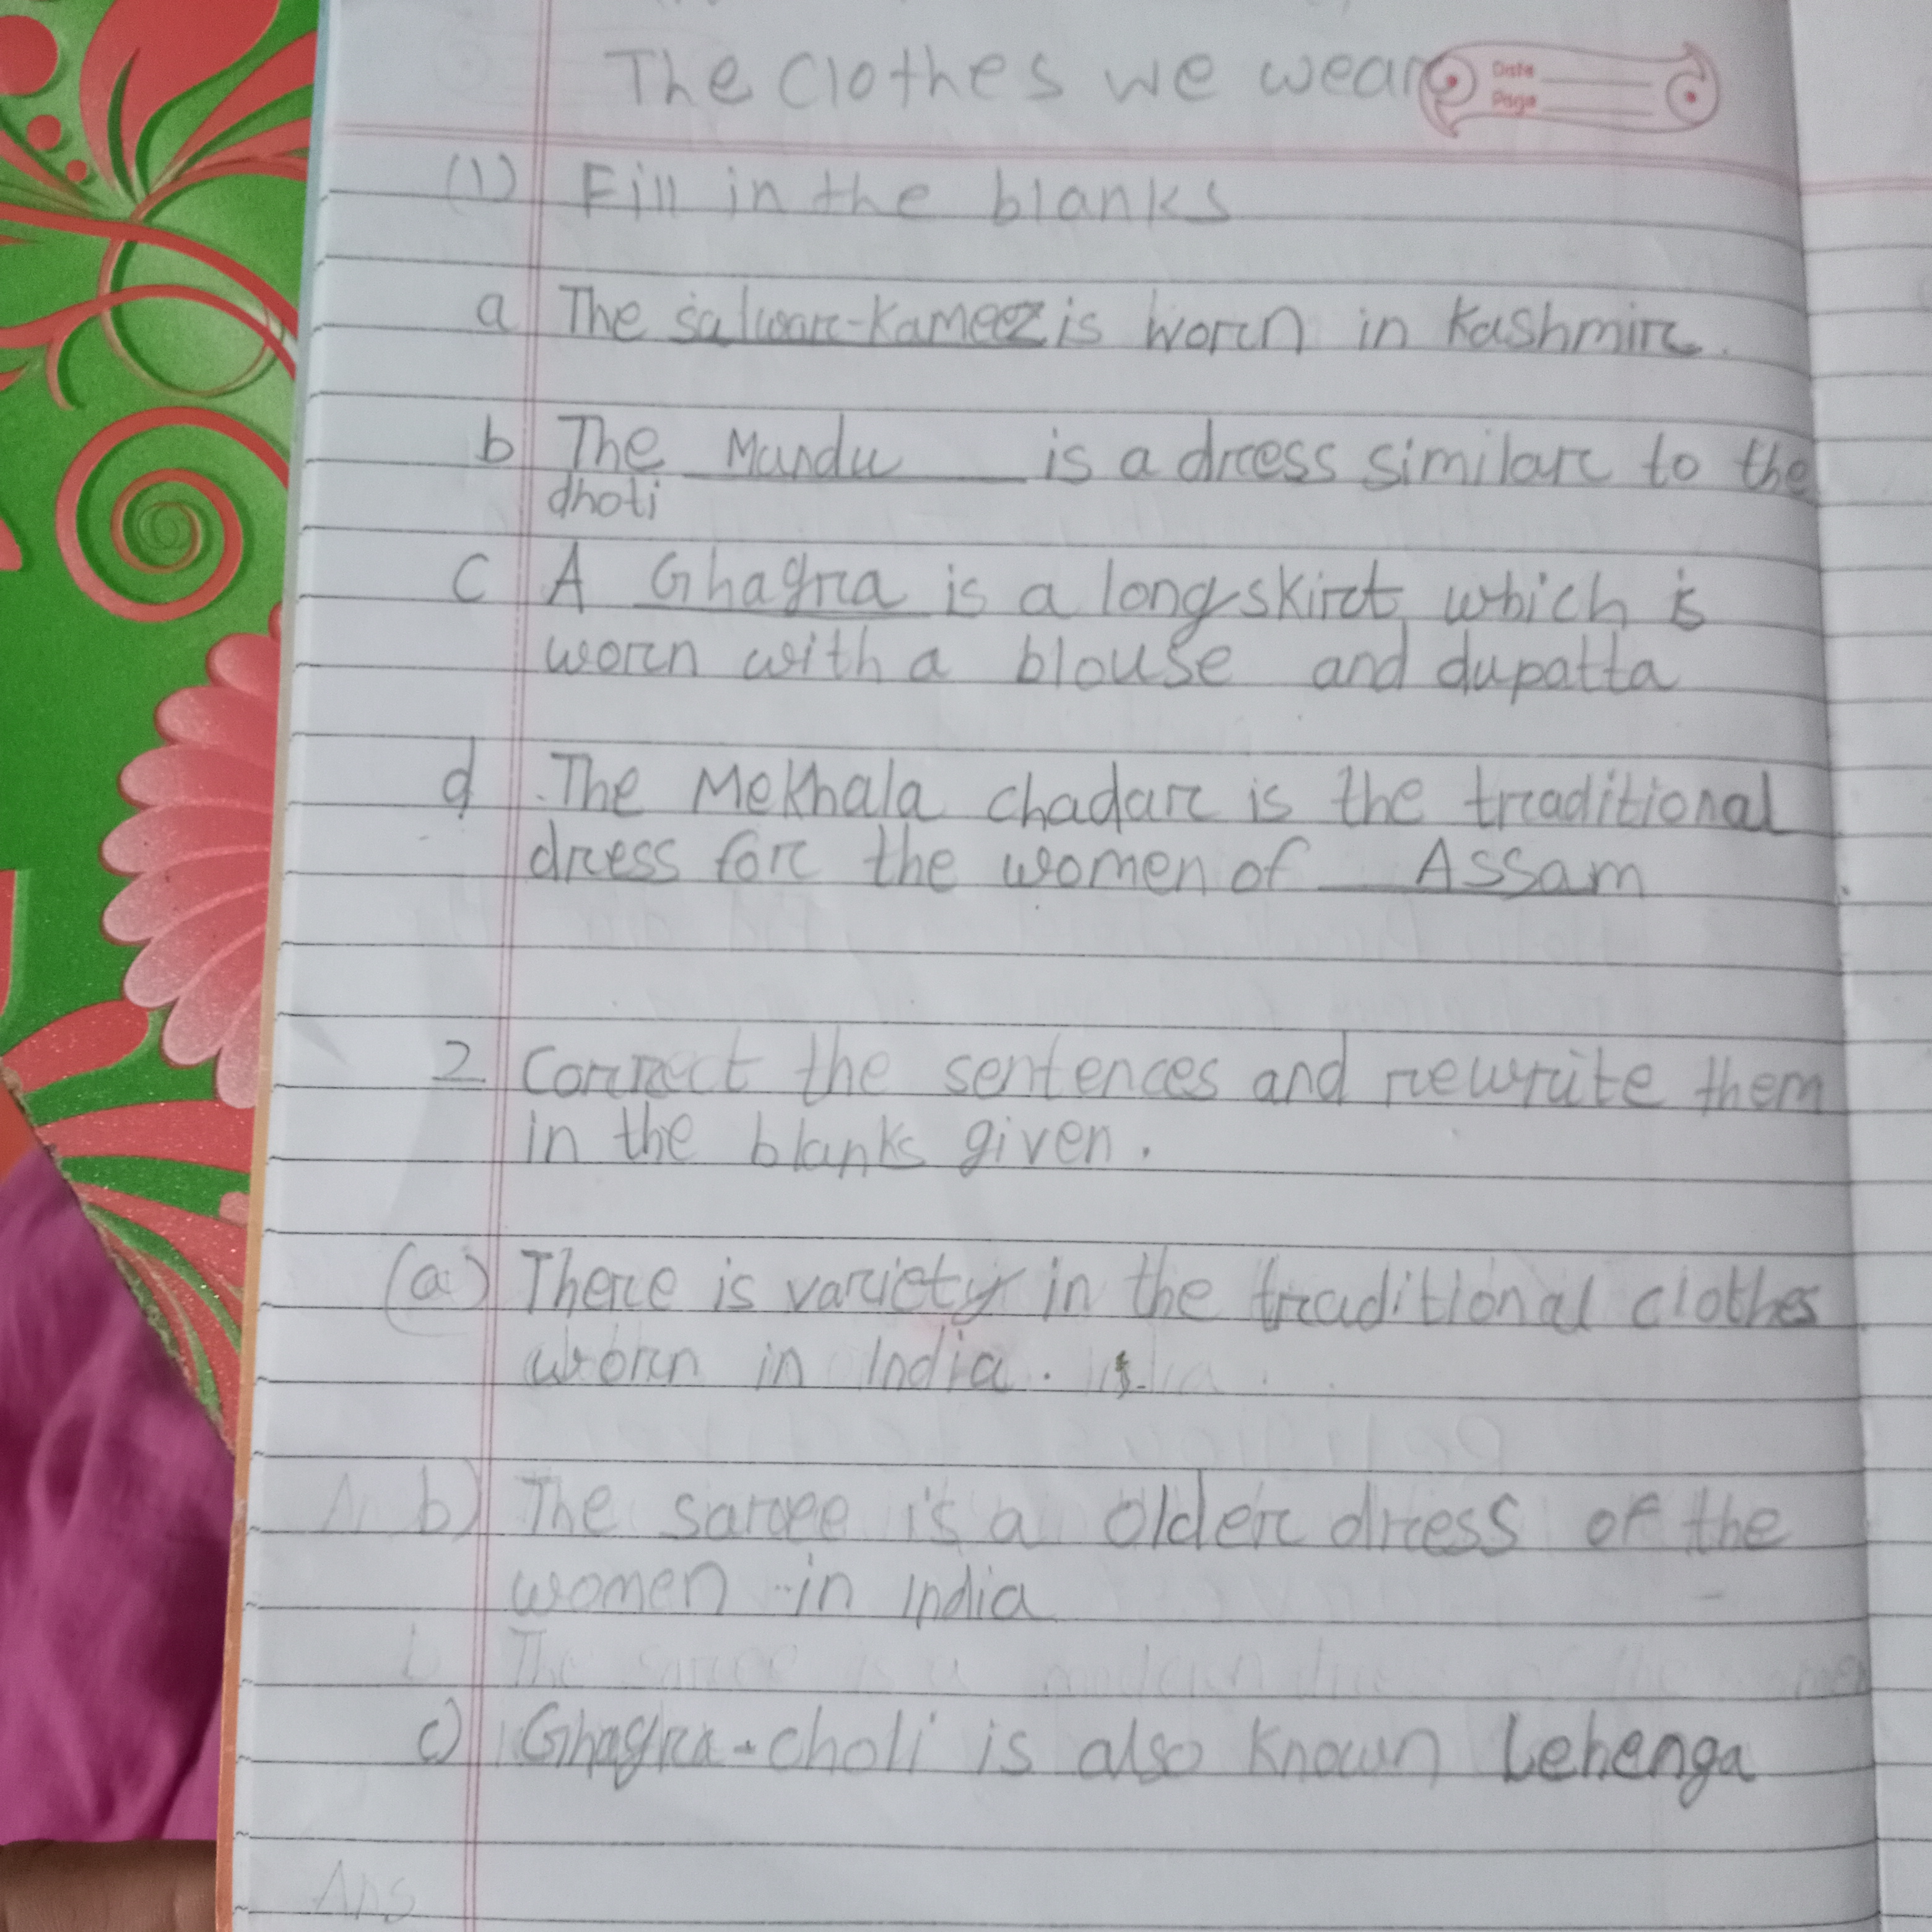 The Clothes we wear
Date
Page
(1) Fill in the blanks
a The salwar-Kameez is worn in Kashmir.
b The Mundu is a dress similar to the
dhoti
c A Ghagra is a long skirt, which is
worn with a blouse and dupatta
d The Mekhala chadar is the traditional
dress for the women of Assam.
2 Correct the sentences and rewrite them
in the blanks given.
(a) There is variety in the traditional clothes
worn in India.
b) The saree is a older dress of the
women in India
c) Ghagra-choli is also known Lehenga
Ans